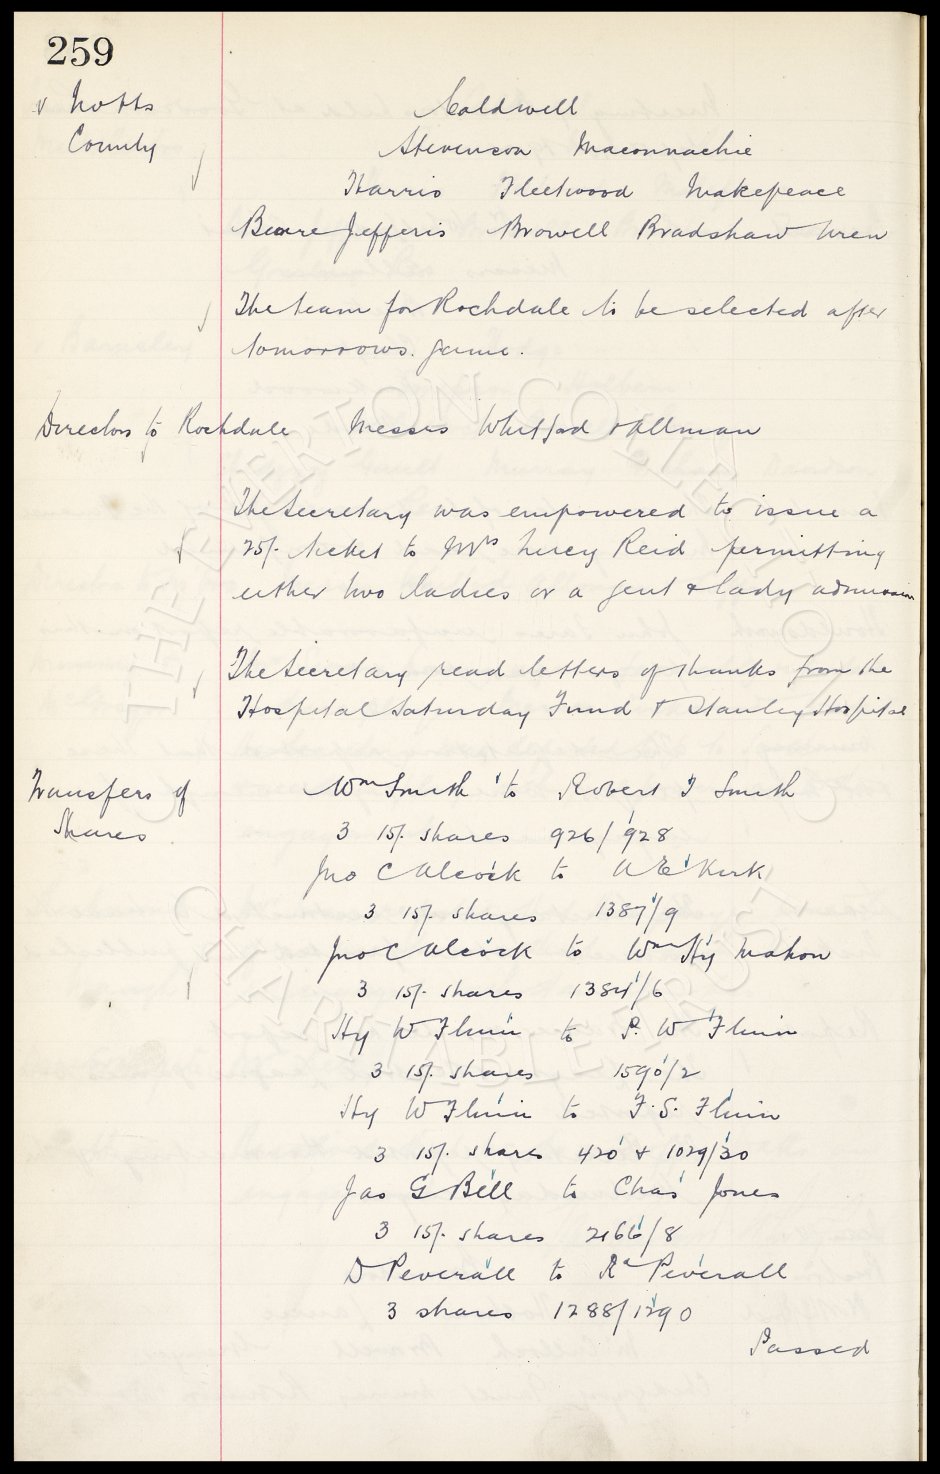 259
v Notts
County
Caldwell
Stevenson Maconnachie
Harris Fleetwood Makepeace
Beare Jefferis Browell Bradshaw Wren
The team for Rochdale to be selected after
tomorrows. game.
Directors to Rochdale Messrs Whitford & Allman
The Secretary was empowered to issue a
25/- ticket to Mrs Lucy Reid permitting
either two ladies or a gent & lady admission
The Secretary read letters of thanks from the
Hospital Saturday Fund & Stanley Hospital
Transfers of
Shares
Wm Smith to Robert J Smith
3 15/- shares 926/928
Jno C Alcock to A E Kirk
3 15/- shares 1387/9
Jno C Alcock to Wm Hy Mahon
3 15/- shares 1384/6
Hy W Flinn to P. W Flinn
3 15/- shares 1590/2
Hy W Flinn to F. S. Flinn
3 15/- shares 420 & 1029/30
Jas G Bell to Chas Jones
3 15/- shares 2166/8
D Peverall to Ra Peverall
3 shares 1288/1290
Passed
THE EVERTON COLLECTION
CHARITABLE TRUST